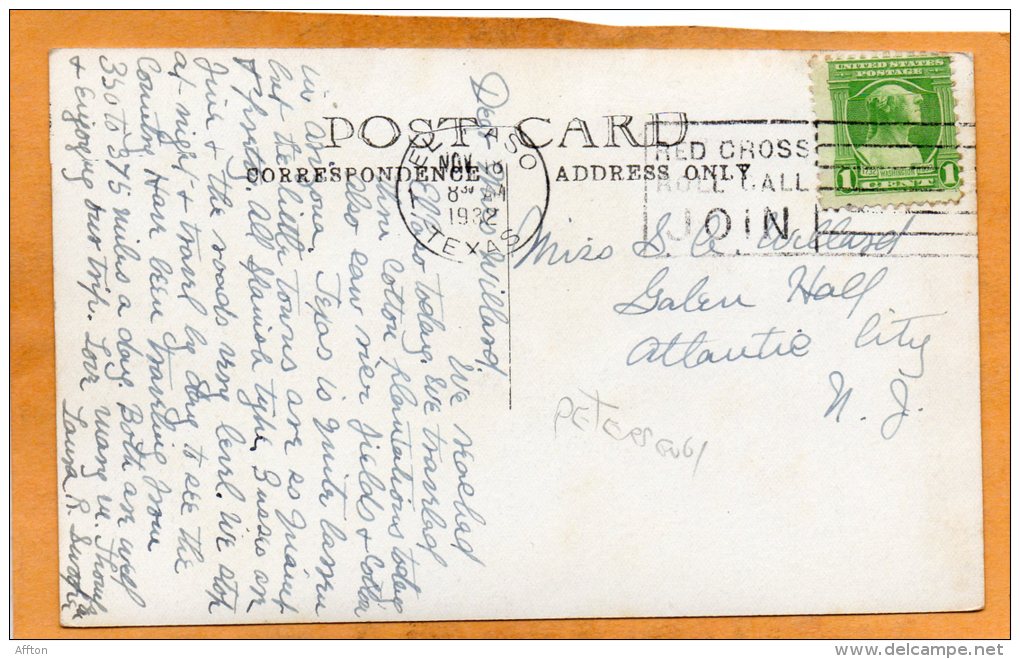 POST CARD
CORRESPONDENCE
ADDRESS ONLY
EL PASO
NOV 18
8 30 AM
1932
TEXAS
RED CROSS
ROLL CALL
JOIN
UNITED STATES
POSTAGE
1 CENT 1
Dear Miss Willard,
We reached
El Paso today. We traveled
thru Cotton plantations today
also saw rice fields & Cotton
in Arizona. Texas is quite barren
but the little towns are so quaint
& pretty. All Spanish type. Buses are
fine & the roads very level. We stop
at night & travel by day to see the
Country. Have been traveling from
350 to 375 miles a day. Both are well
& Enjoying our trip. Love many
Laura R.
Miss S. A. Willard
Galen Hall
Atlantic City
N. J.
PETERS
Affton
www.delcampe.net